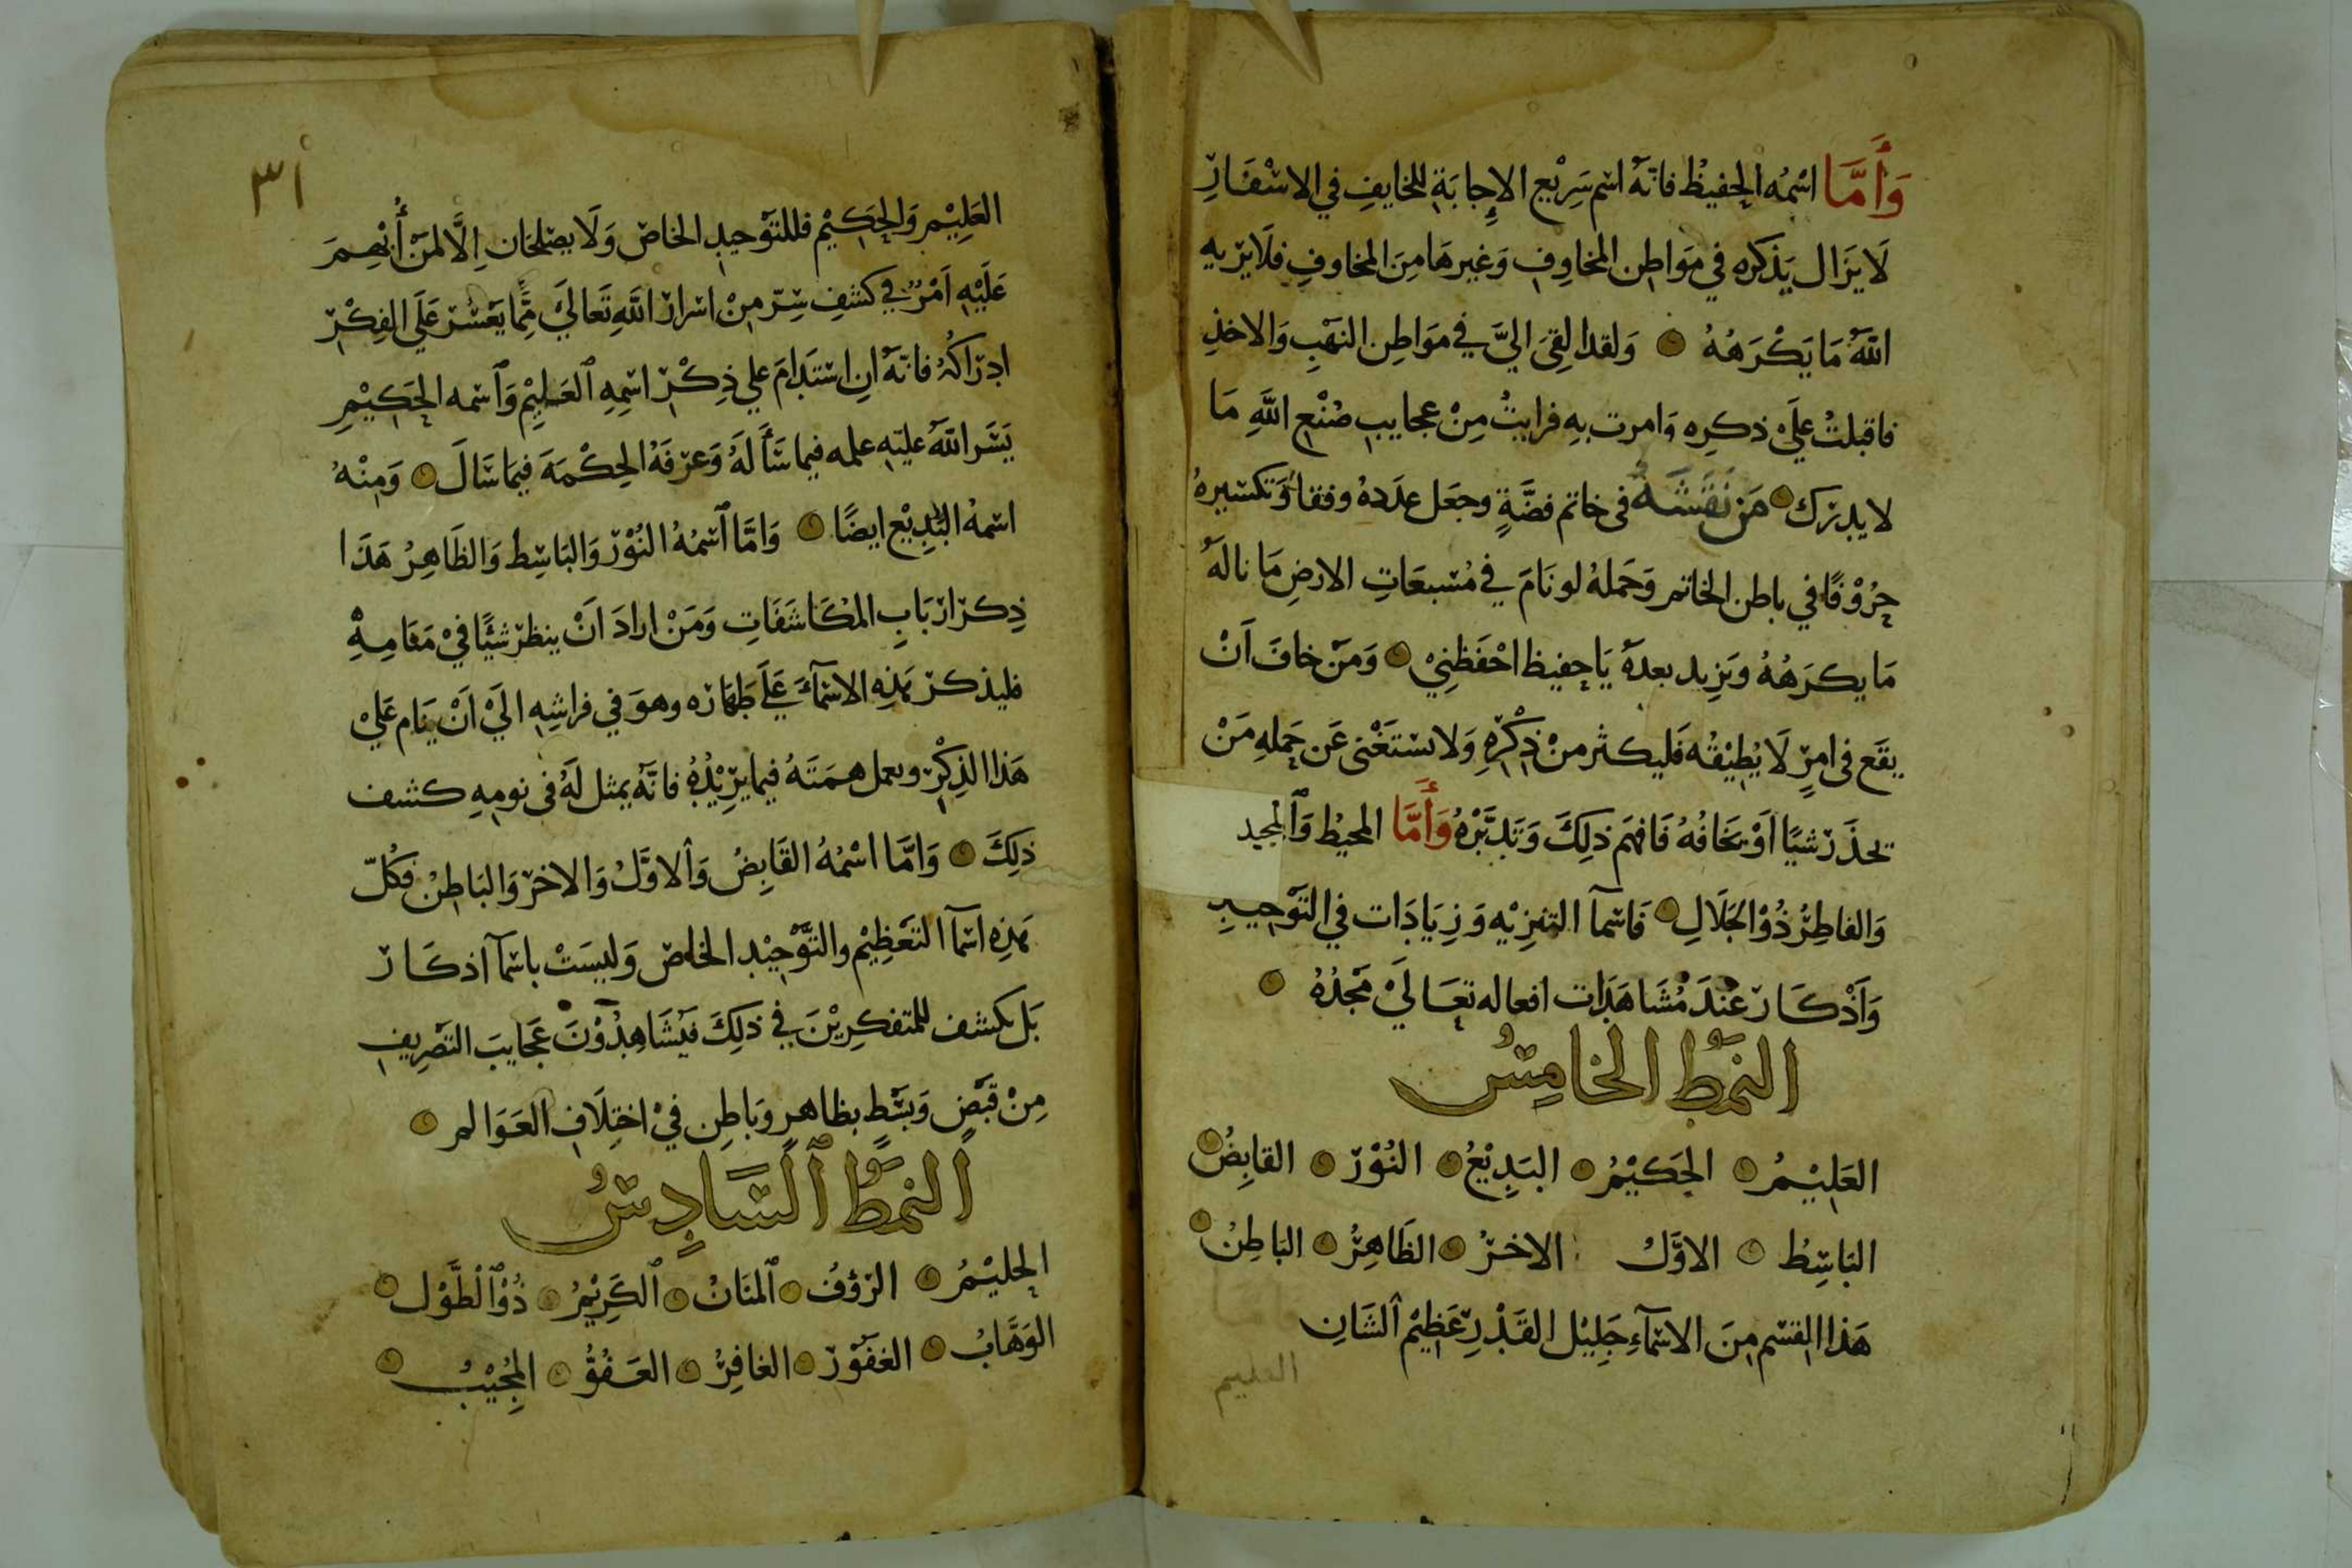 وَأَمَّا اسْمُه الحفيظ فانّهُ اسم سَرِيْع الإجابَةِ للخايفِ في الاسْفَارِ
لَا يَزَال يَذكره في مَوَاطِن المخاوِفِ وَغيرهَا مِنَ المخاوفِ فلَا يَرْيهِ
اللّٰهُ مَا يَكْرَهُهُ وَلقد القِىَ اليَّ في مَوَاطِن النهْبِ وَالاخذِ
فاقبلتُ عَلَى ذكرِه وَامرت بهِ فرايتُ مِنْ عجايبِ صُنْعِ اللّٰهِ مَا
لا يدرك مَن نَقَشَهُ فى خاتم فضَّةٍ وجعَل عدَدهُ وفقا وَتكسيرهُ
حرُوْفًا في باطن الخاتم وَحَملهُ لو نَامَ في مُسْبعَاتِ الارضِ مَا نالهُ
مَا يكرَهُهُ وَيَزِيد بعدهُ يَا حفيظ احْفَظِنِيْ وَمَنْ خافَ اَنْ
يقَع فى امرٍ لَا يُطِيْقُه فَليكثر مِنْ ذِكْرِهِ وَلا يسْتَغْنى عَن حَملهِ مَنْ
يحذَرْ شيًا اَوْ يَخافُهُ فَافهَم ذلِكَ وَتَدَبَّرْهُ وَأَمَّا المحيْط وَالمجيد
وَالفاطِرُ ذُوْ الجَلَالِ فَاسْمآ التنزِيْهِ وَزِيَادَات في التَّوْحيدِ
وَاَذْكَار عنْدَ مُشَاهَدَات افعاله تعَالَىْ مَجْدُهُ
النمَط الخامِسُ
العَلِيْمُ الحَكيْمُ البَدِيْعُ النُوْرُ القابِضُ
البَاسِطُ الاوَّلُ الاخرُ الظَاهِرُ البَاطِنُ
هَذا القسْم مِنَ الاسْمآءِ جَلِيْل القَدْرِ عَظِيْم الشَانِ
العليم
٣١
العَلِيْم وَالحَكِيْم فللتَوْحيدِ الخاصّ وَلَا يصْلحَان اِلَّا لمَنْ أُبْهِمَ
عَلَيْهِ اَمْرٌ في كشفِ سِرّ مِنْ اسْرارِ اللّٰهِ تَعَالَىْ مِمَّا يَعْسُر عَلَى الفِكْرِ
ادْرَاكُهُ فانّهُ ان اسْتَدَامَ علي ذِكْرِ اسْمِهِ العَلِيْمِ وَاسْمه الحَكِيْمِ
يَسَّر اللّٰهُ عليْهِ علمه فيما سَأَلَهُ وَعرّفَهُ الحِكْمَةَ فيمَا سَالَ وَمِنْهُ
اسْمهُ البَدِيْع ايضًا وَامَّا اسْمُهُ النُوْرُ وَالبَاسِط وَالظَاهِرُ هَذَا
ذِكرُ ارْبَابِ المُكَاشَفَاتِ وَمَنْ ارادَ اَنْ ينظرْ شيْئًا فيْ مَقَامِهِ
فليذكرْ بهَذِهِ الاسْمآءَ عَلَى طهَارَه وهوَ في فراشِهِ الَيْ اَنْ يَنَام عَلَيْ
هَذا الذِكْر ويعمل همتَهُ فيما يرِيْدُهُ فانّهُ يمثل لَهُ فى نومِهِ كشف
ذلِكَ وَامَّا اسْمُهُ القَابِضُ وَالاوَّلُ وَالاخرْ وَالبَاطِنُ فكُلّ
هَذِهِ اسْمآ التَعَظِيْم والتَّوْحِيْد الخاصّ وَليسَتْ باسْمآ اذكَار
بَل يكشف للمتفكِرِيْنَ في ذلِكَ فيُشَاهِدُوْنَ عَجَايبَ التَصْرِيفِ
مِنْ قَبْضٍ وَبَسْطٍ بظاهرٍ وَبَاطِن فيْ اختِلَافِ العَوَالم
النمَطُ السَّادِسُ
الحليْمُ الرَّؤُفُ المَنانُ الكَرِيْمُ ذُوْ الطَّوْل
الوَهَّابُ الغفُوْر الغافِرُ العَفُوُّ المُجِيْبُ